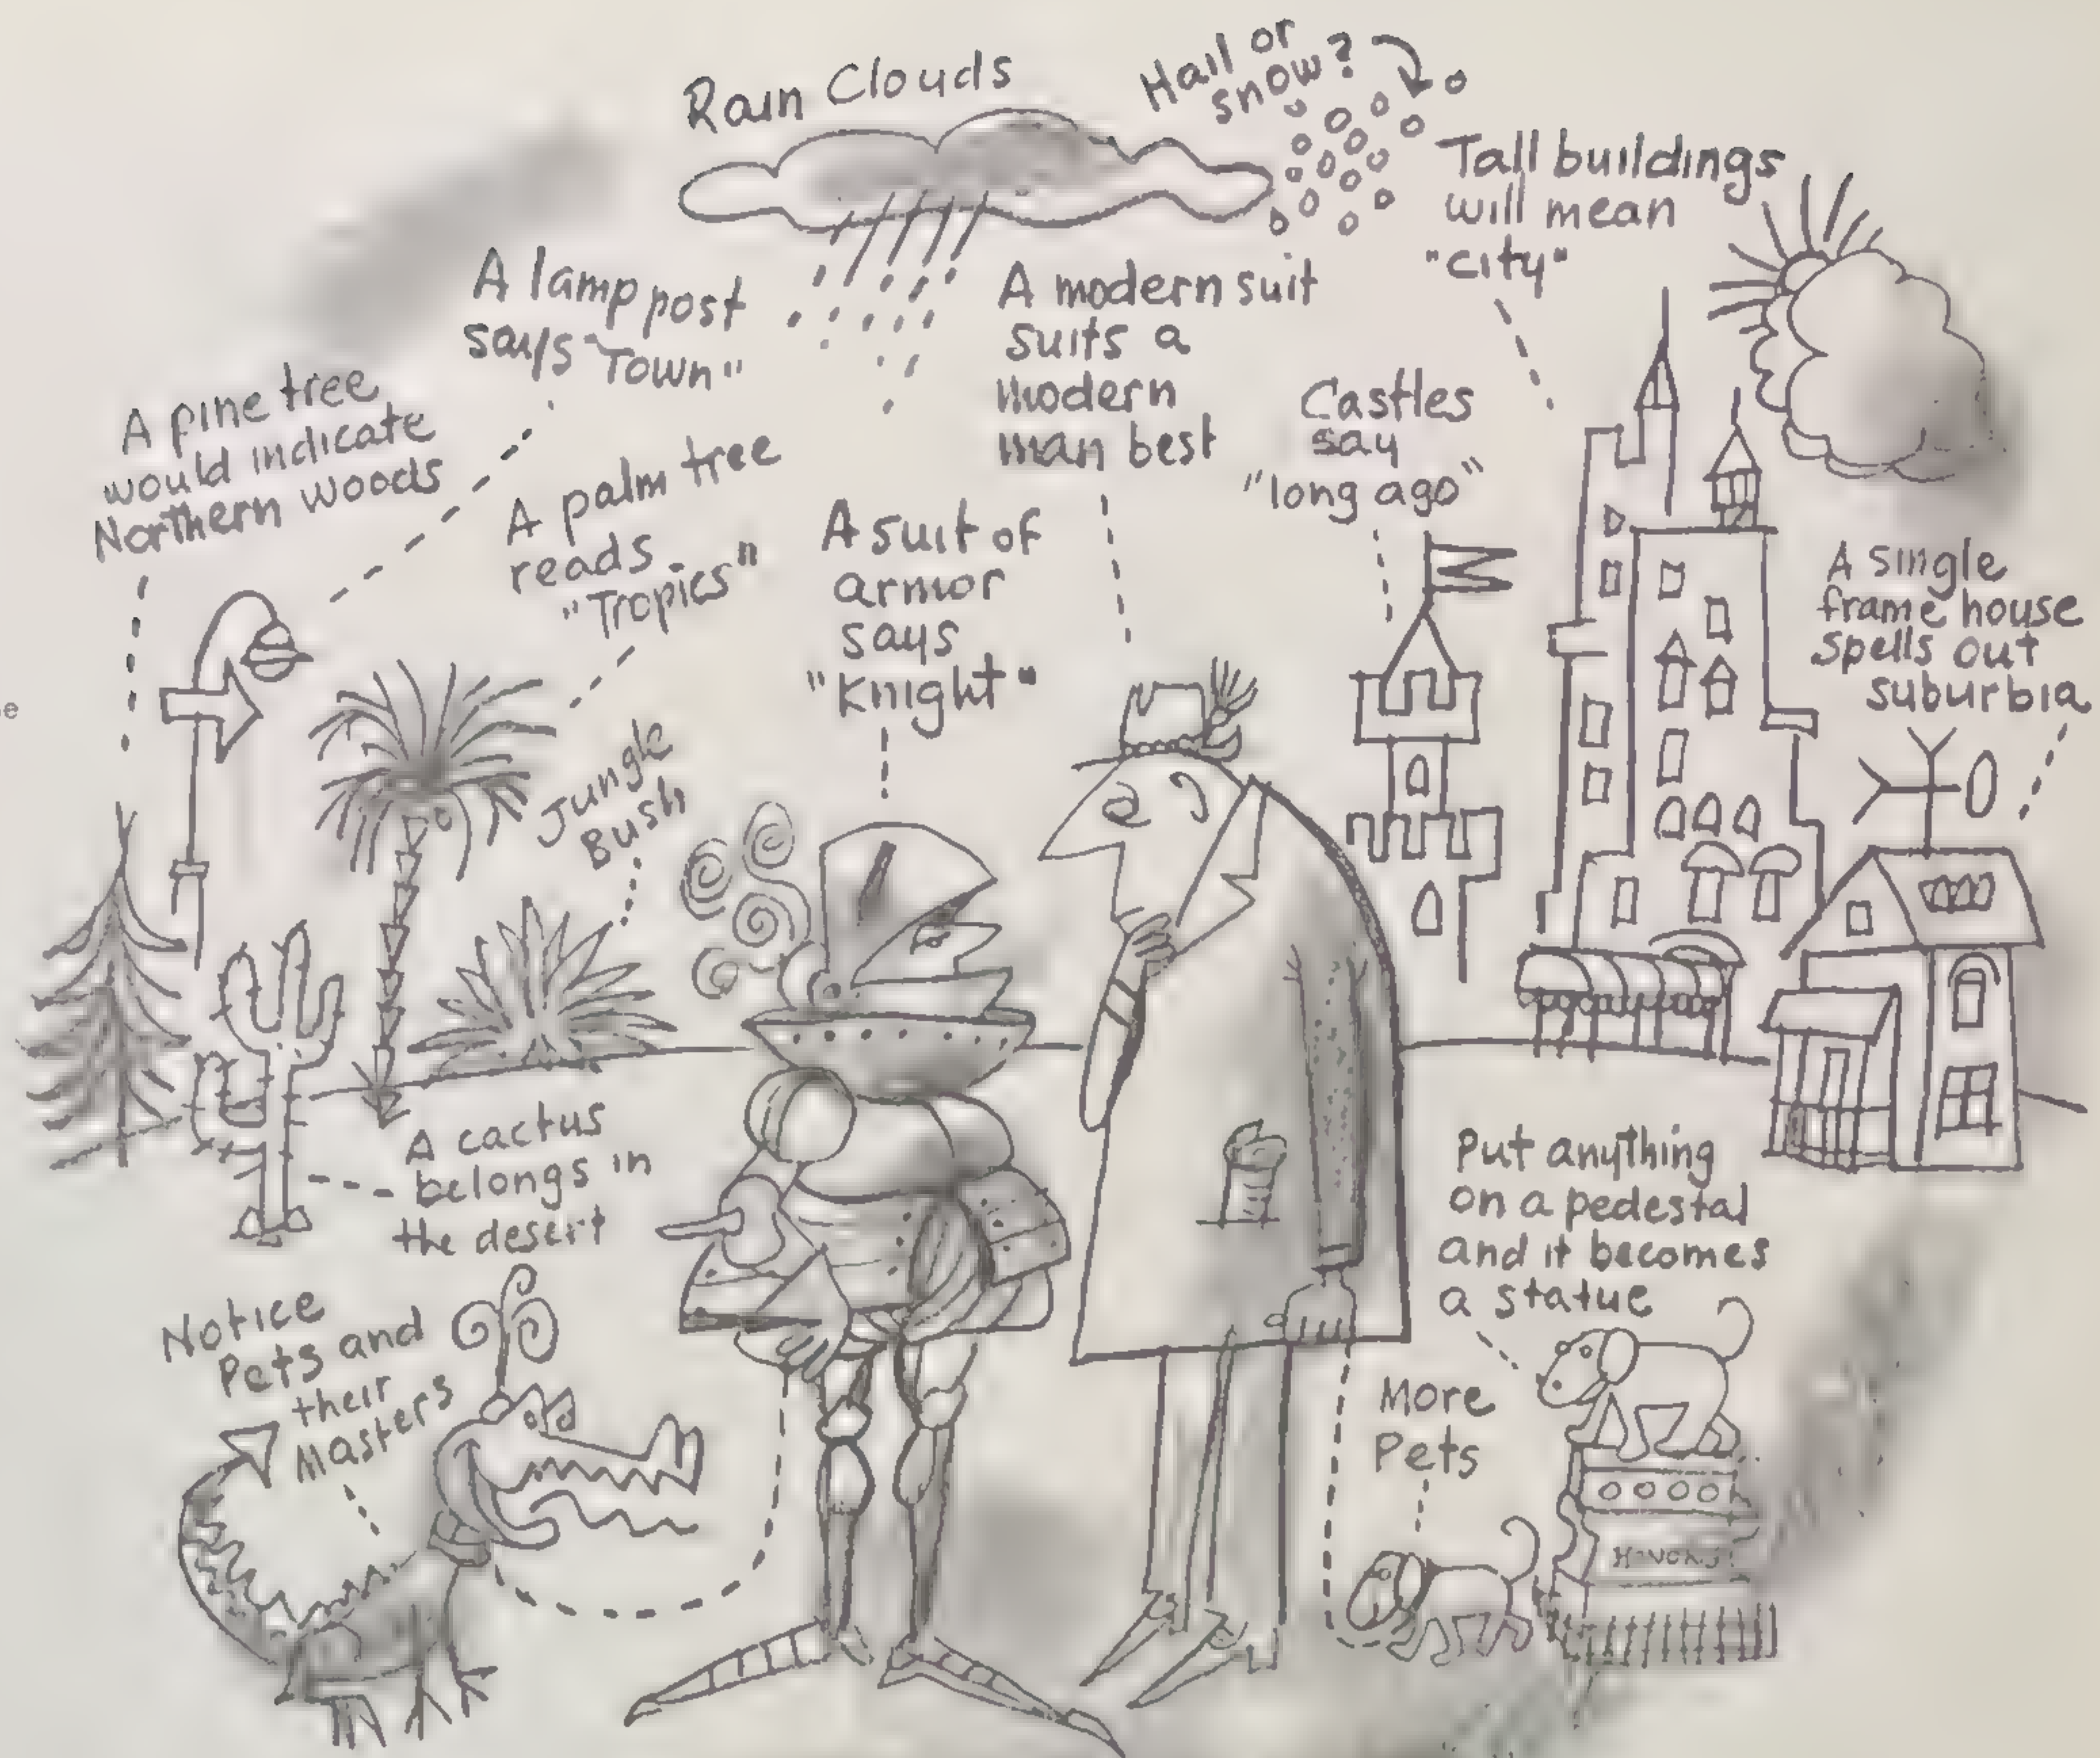 Rain Clouds
Hail or
snow?
Tall buildings
will mean
"city"
A lamp post
says "Town"
A modern suit
suits a
modern
man best
A pine tree
would indicate
Northern Woods
Castles
say
"long ago"
A palm tree
reads
"Tropics"
A suit of
armor
says
"Knight"
A single
frame house
spells out
suburbia
Jungle
Bush
A cactus
belongs in
the desert
Put anything
on a pedestal
and it becomes
a statue
Notice
Pets and
their
Masters
More
Pets